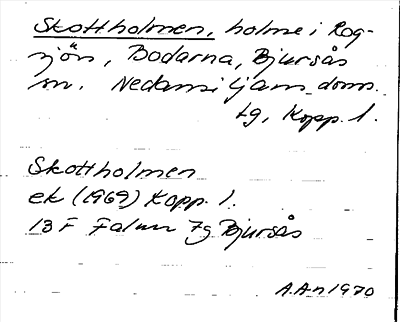 Skottholmen, holme i Rog-
sjön, Bodarna, Bjursås
sn. Nedansiljans doms.
tg, Kopp. l.
Skottholmen
ek (1969) Kopp. l.
13 F Falun 7g Bjursås
A.An 1970